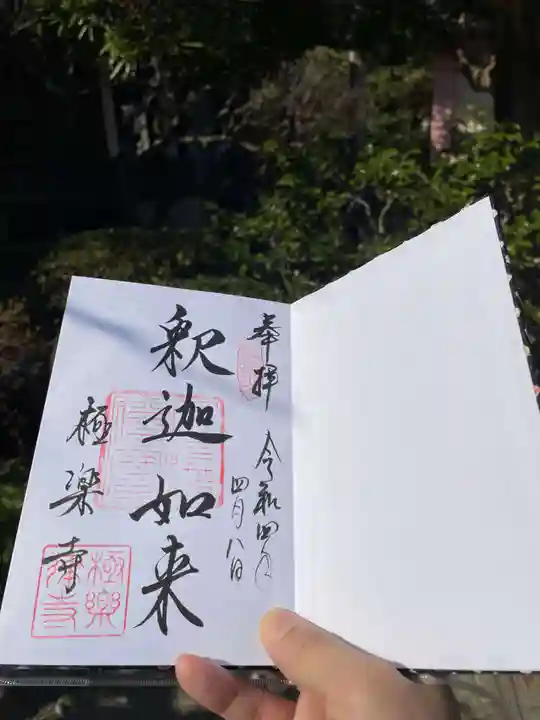 奉拝
令和四年
四月八日
釈迦如来
極楽寺